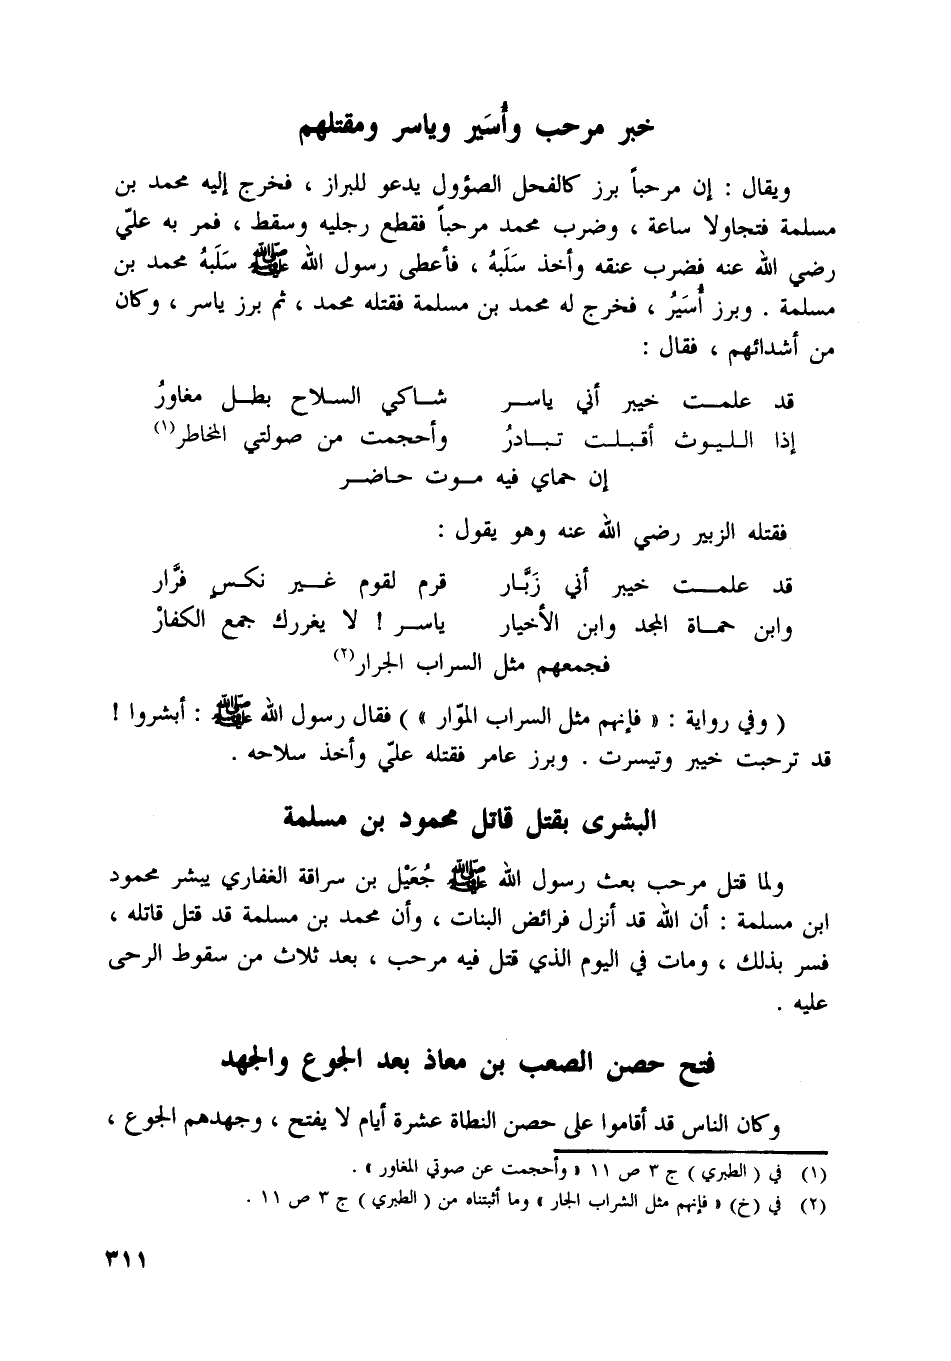 خبر مرحب وأُسَير وياسر ومقتلهم
ويقال : إن مرحباً برز كالفحل الصؤول يدعو للبراز ، فخرج إليه محمد بن
مسلمة فتجاولا ساعة ، وضرب محمد مرحباً فقطع رجليه وسقط ، فمر به عليّ
رضي الله عنه فضرب عنقه وأخذ سَلَبهُ ، فأعطى رسول الله ﷺ سَلَبهُ محمد بن
مسلمة . وبرز أُسَيَرُ ، فخرج له محمد بن مسلمة فقتله محمد ، ثم برز ياسر ، وكان
من أشدائهم ، فقال :
قد علمـــت خيبر أني ياســر شــاكي الســلاح بطــل مغاورُ
إذا اللـيـوث أقبـلـت تبــادرُ وأحجمت من صولتي المخاطر(١)
إن حماي فيه مــوت حـاضــر
فقتله الزبير رضي الله عنه وهو يقول :
قد علمـــت خيبر أني زَبَّـار قرم لقوم غـــير نكــسٍ فرَّار
وابن حمــاة المجد وابن الأخيار ياســر ! لا يغررك جمع الكفارْ
فجمعهم مثل السراب الجرار(٢)
( وفي رواية : « فإنهم مثل السراب الموّار » ) فقال رسول الله ﷺ : أبشروا !
قد ترحبت خيبر وتيسرت . وبرز عامر فقتله عليّ وأخذ سلاحه .
البشرى بقتل قاتل محمود بن مسلمة
ولما قتل مرحب بعث رسول الله ﷺ جُعَيْل بن سراقة الغفاري يبشر محمود
ابن مسلمة : أن الله قد أنزل فرائض البنات ، وأن محمد بن مسلمة قد قتل قاتله ،
فسر بذلك ، ومات في اليوم الذي قتل فيه مرحب ، بعد ثلاث من سقوط الرحى
عليه .
فتح حصن الصعب بن معاذ بعد الجوع والجهد
وكان الناس قد أقاموا على حصن النطاة عشرة أيام لا يفتح ، وجهدهم الجوع ،
(١) في ( الطبري ) ج ٣ ص ١١ « وأحجمت عن صوتي المغاور » .
(٢) في (خ) « فإنهم مثل الشراب الجار » وما أثبتناه من ( الطبري ) ج ٣ ص ١١ .
٣١١